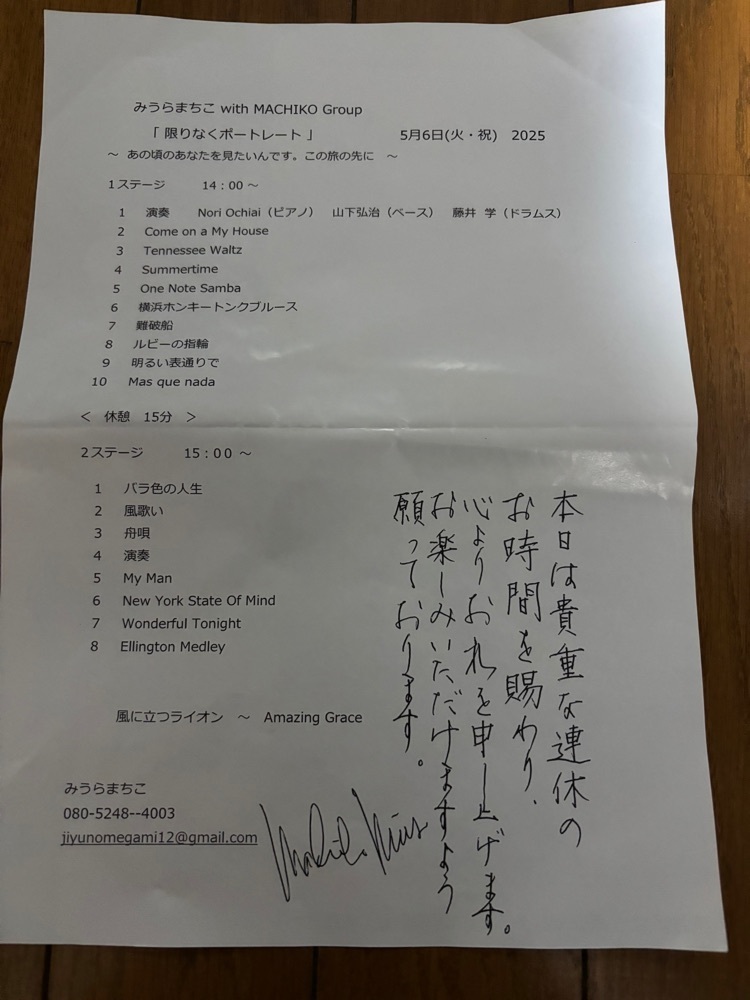 みうらまちこ with MACHIKO Group
「 限りなくポートレート 」 5月6日(火・祝) 2025
～ あの頃のあなたを見たいんです。この旅の先に ～
1ステージ 14：00 ～
1 演奏 Nori Ochiai（ピアノ） 山下弘治（ベース） 藤井 学（ドラムス）
2 Come on a My House
3 Tennessee Waltz
4 Summertime
5 One Note Samba
6 横浜ホンキートンクブルース
7 難破船
8 ルビーの指輪
9 明るい表通りで
10 Mas que nada
＜ 休憩 15分 ＞
2ステージ 15：00 ～
1 バラ色の人生
2 風歌い
3 舟唄
4 演奏
5 My Man
6 New York State Of Mind
7 Wonderful Tonight
8 Ellington Medley
風に立つライオン ～ Amazing Grace
みうらまちこ
080-5248--4003
jiyunomegami12@gmail.com
本日は貴重な連休の
お時間を賜わり、
心よりお礼を申し上げます。
お楽しみいただけますよう
願っております。
Machiko Miura